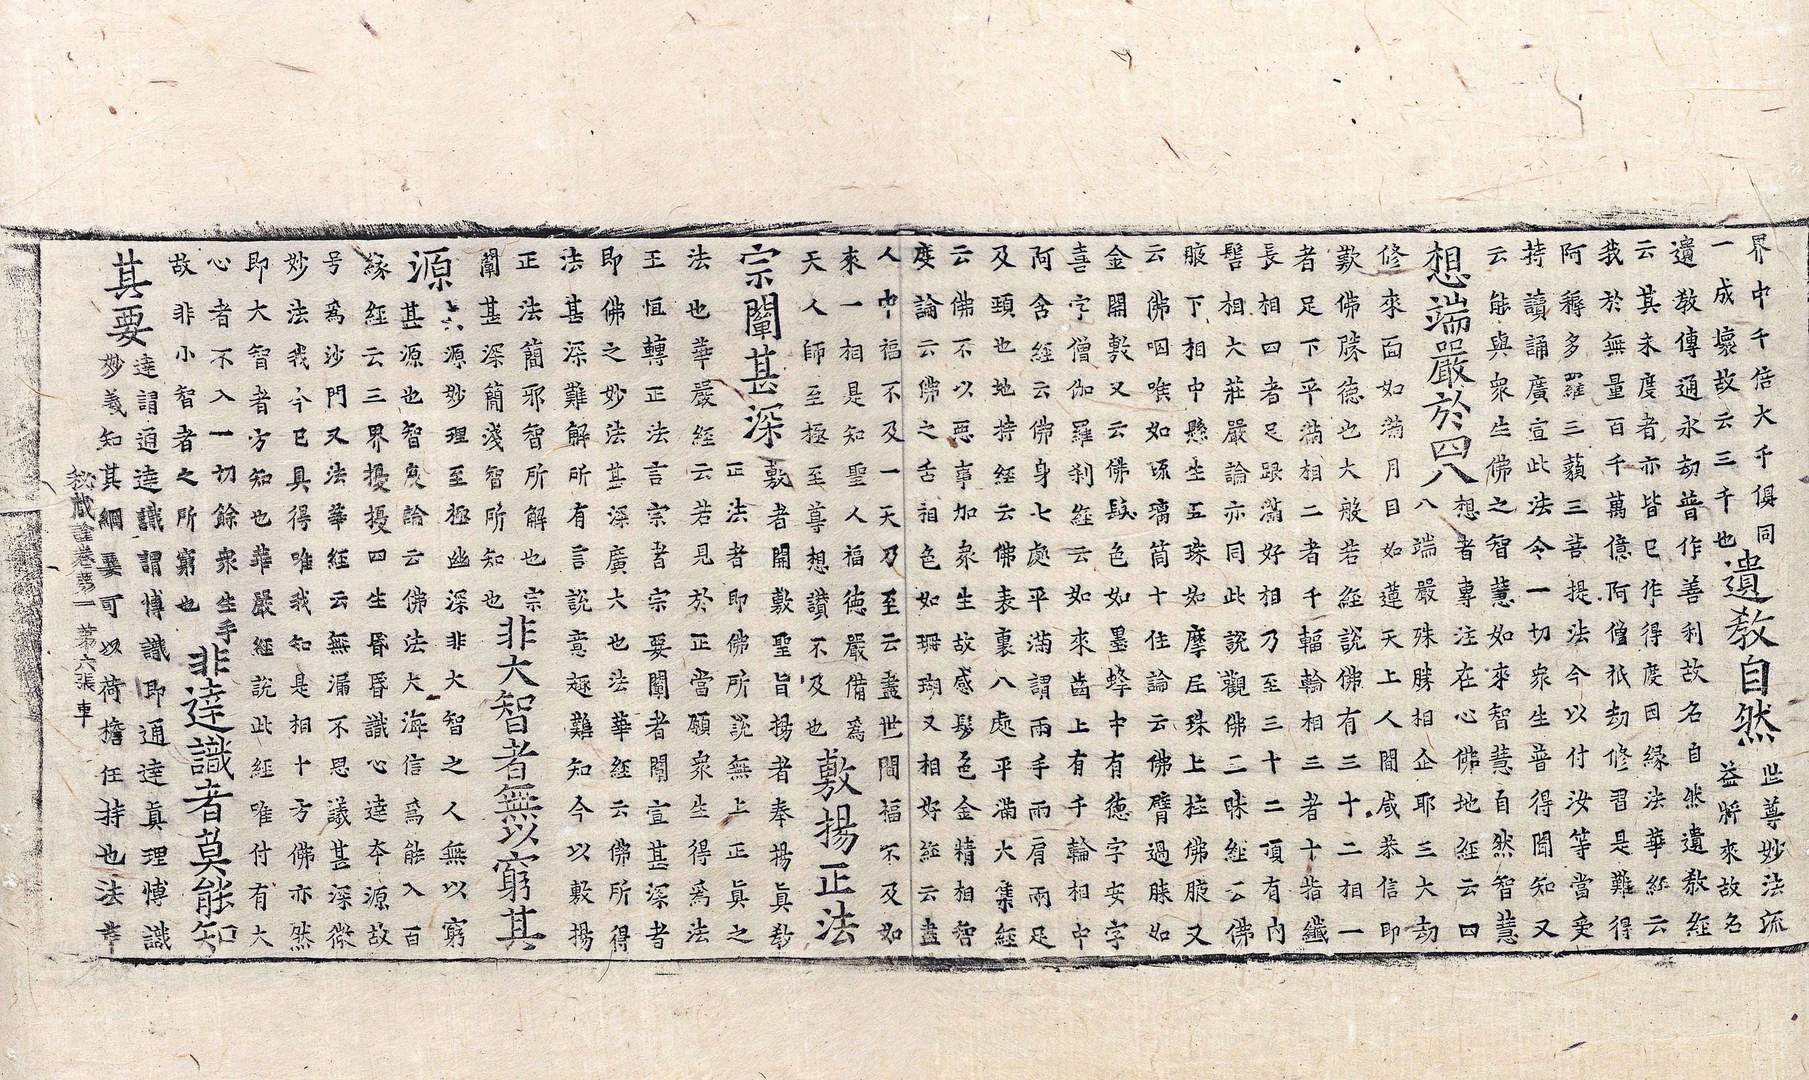 界中千倍大千俱同
一成壞故云三千也
遺教自然
世尊妙法流
益將來故名
遺教傳通永劫普作善利故名自然遺教經
云其未度者亦皆已作得度因緣法華經云
我於無量百千萬億阿僧祇劫修習是難得
阿耨多羅三藐三菩提法今以付汝等當受
持讀誦廣宣此法令一切衆生普得聞知又
云能與衆生佛之智慧如來智慧自然智慧
想端嚴於四八
想者專注在心佛地經云四
八端嚴殊勝相企耶三大劫
修來面如滿月目如蓮天上人間咸恭信即
歎佛勝德也大般若經說佛有三十二相一
者足下平滿相二者千輻輪相三者十指纖
長相四者足跟滿好相乃至三十二頂有肉
髻相大莊嚴論亦同此說觀佛三昧經云佛
腋下相中懸生五珠如摩尼珠上拄佛腋又
云佛咽喉如琉璃筒十住論云佛臂過膝如
金開敷又云佛髮色如墨蜂中有德字安字
喜字僧伽羅刹經云如來齒上有千輪相中
阿含經云佛身七處平滿謂兩手兩肩兩足
及頸也地持經云佛表裏八處平滿大集經
云佛不以惡事加衆生故感髮色金精相智
度論云佛之舌相色如珊瑚又相好經云盡
人中福不及一天乃至云盡世間福不及如
來一相是知聖人福德嚴備爲
天人師至極至尊想讚不及也
敷揚正法
宗闡甚深
敷者開敷聖旨揚者奉揚眞敎
正法者即佛所說無上正眞之
法也華嚴經云若見於正當願衆生得爲法
王恒轉正法言宗者宗要闡者闡宣甚深者
即佛之妙法甚深廣大也法華經云佛所得
法甚深難解所有言說意趣難知今以敷揚
正法簡邪智所解也宗
闡甚深簡淺智所知也
非大智者無以窮其
源
上六源妙理至極幽深非大智之人無以窮
甚源也智度論云佛法大海信爲能入百
緣經云三界擾擾四生昏昏識心達本源故
号爲沙門又法華經云無漏不思議甚深微
妙法我今已具得唯我知是相十方佛亦然
即大智者方知也華嚴經說此經唯付有大
心者不入一切餘衆生手
故非小智者之所窮也
非達識者莫能知
其要
達謂通達識謂博識即通達眞理博識
妙義知其綱要可以荷擔任持也法華
秘藏詮卷第一 第六張 車